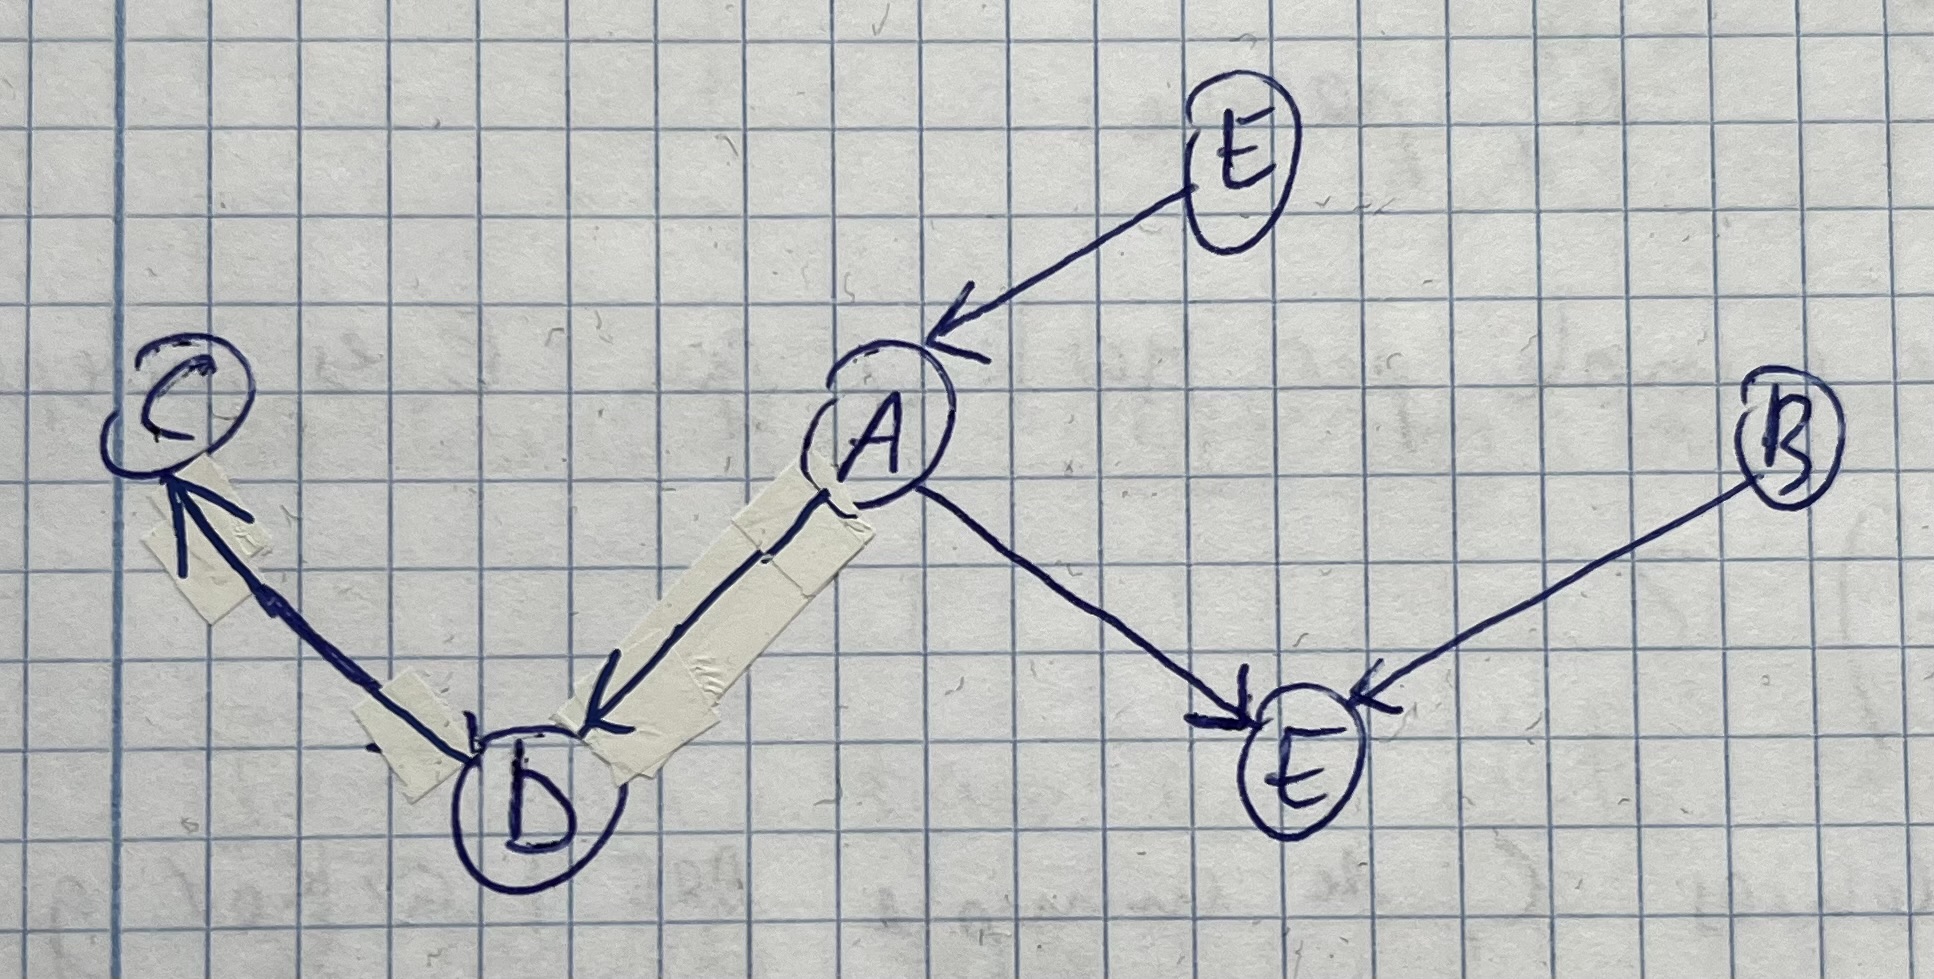 E
C
A
B
D
E